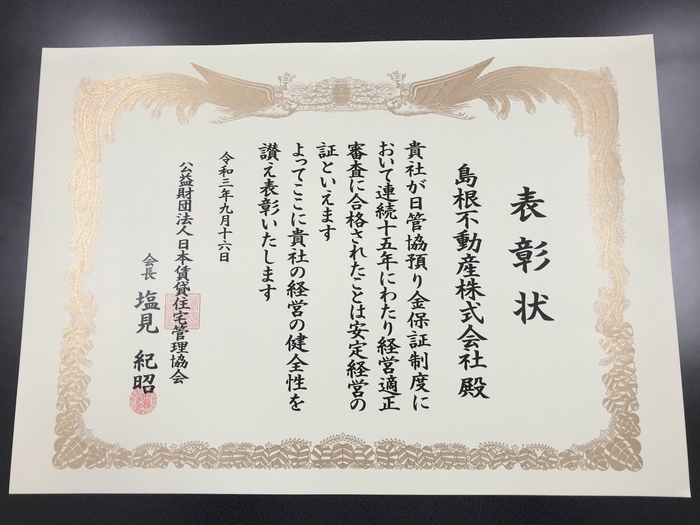 表彰状
島根不動産株式会社 殿
貴社が日管協預り金保証制度に
おいて連続十五年にわたり経営適正
審査に合格されたことは安定経営の
証といえます
よってここに貴社の経営の健全性を
讃え表彰いたします
令和三年九月十六日
公益財団法人日本賃貸住宅管理協会
会長 塩見 紀昭